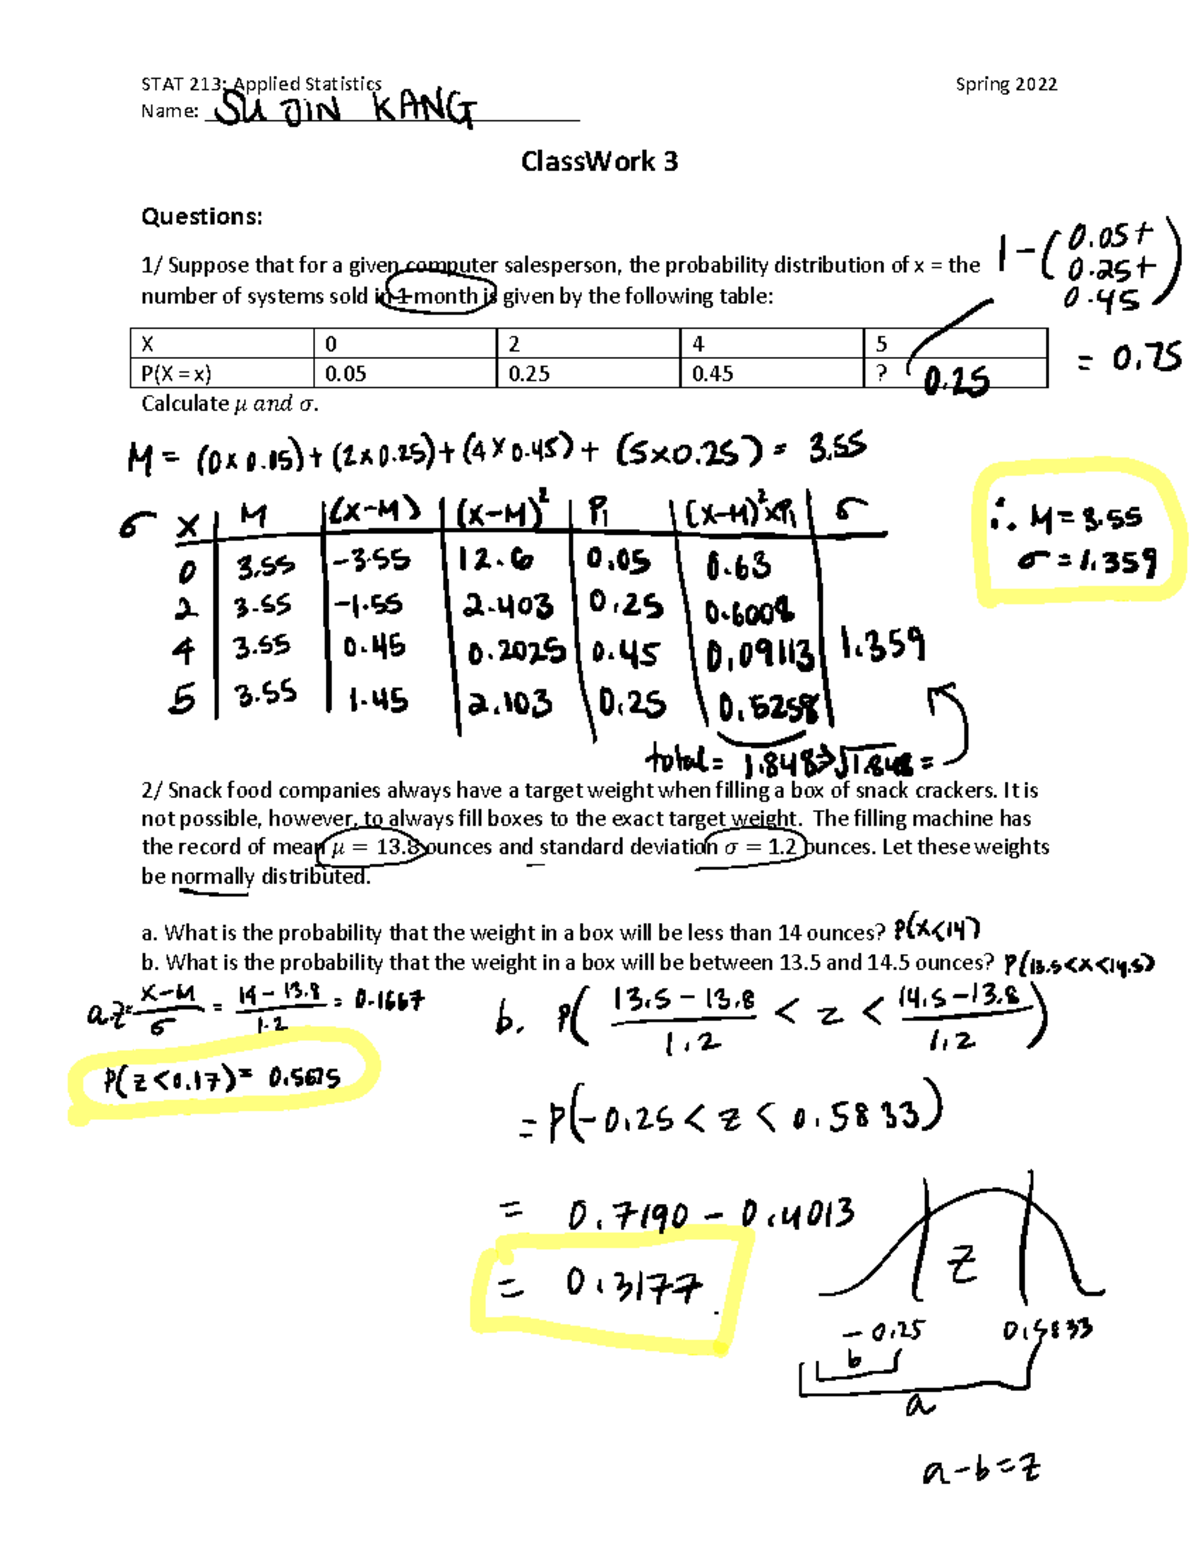 STAT 213: Applied Statistics Spring 2022
Name: SUJIN KANG
ClassWork 3
Questions:
1/ Suppose that for a given computer salesperson, the probability distribution of x = the
number of systems sold in 1 month is given by the following table:
1-(0.05+
0.25+
0.45)
= 0.75
X 0 2 4 5
P(X = x) 0.05 0.25 0.45 ? 0.25
Calculate μ and σ.
M = (0x0.05)+(2x0.25)+(4x0.45)+(5x0.25) = 3.55
σ X M (X-M) (X-M)² Pi (X-M)²xPi σ
0 3.55 -3.55 12.6 0.05 0.63
2 3.55 -1.55 2.403 0.25 0.6008
4 3.55 0.45 0.2025 0.45 0.09113 1.359
5 3.55 1.45 2.103 0.25 0.5258
total = 1.848 → √1.848 =
∴ M = 3.55
σ = 1.359
2/ Snack food companies always have a target weight when filling a box of snack crackers. It is
not possible, however, to always fill boxes to the exact target weight. The filling machine has
the record of mean μ = 13.8 ounces and standard deviation σ = 1.2 ounces. Let these weights
be normally distributed.
a. What is the probability that the weight in a box will be less than 14 ounces? P(X<14)
b. What is the probability that the weight in a box will be between 13.5 and 14.5 ounces? P(13.5<X<14.5)
a. Z = X-M/σ = 14-13.8/1.2 = 0.1667
P(Z<0.17) = 0.5675
b. P(13.5-13.8/1.2 < Z < 14.5-13.8/1.2)
= P(-0.25 < Z < 0.5833)
= 0.7190 - 0.4013
= 0.3177
Z
-0.25 0.5833
b
a
a-b=Z